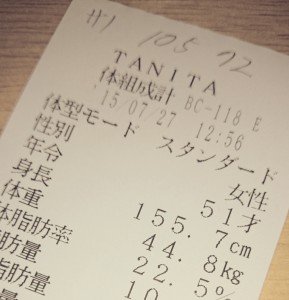 105 72
TANITA
体組成計 BC-118 E
'15/07/27 12:56
体型モード スタンダード
性別 女性
年令 51才
身長 155.7cm
体重 44.8kg
体脂肪率 22.5%
脂肪量 10.